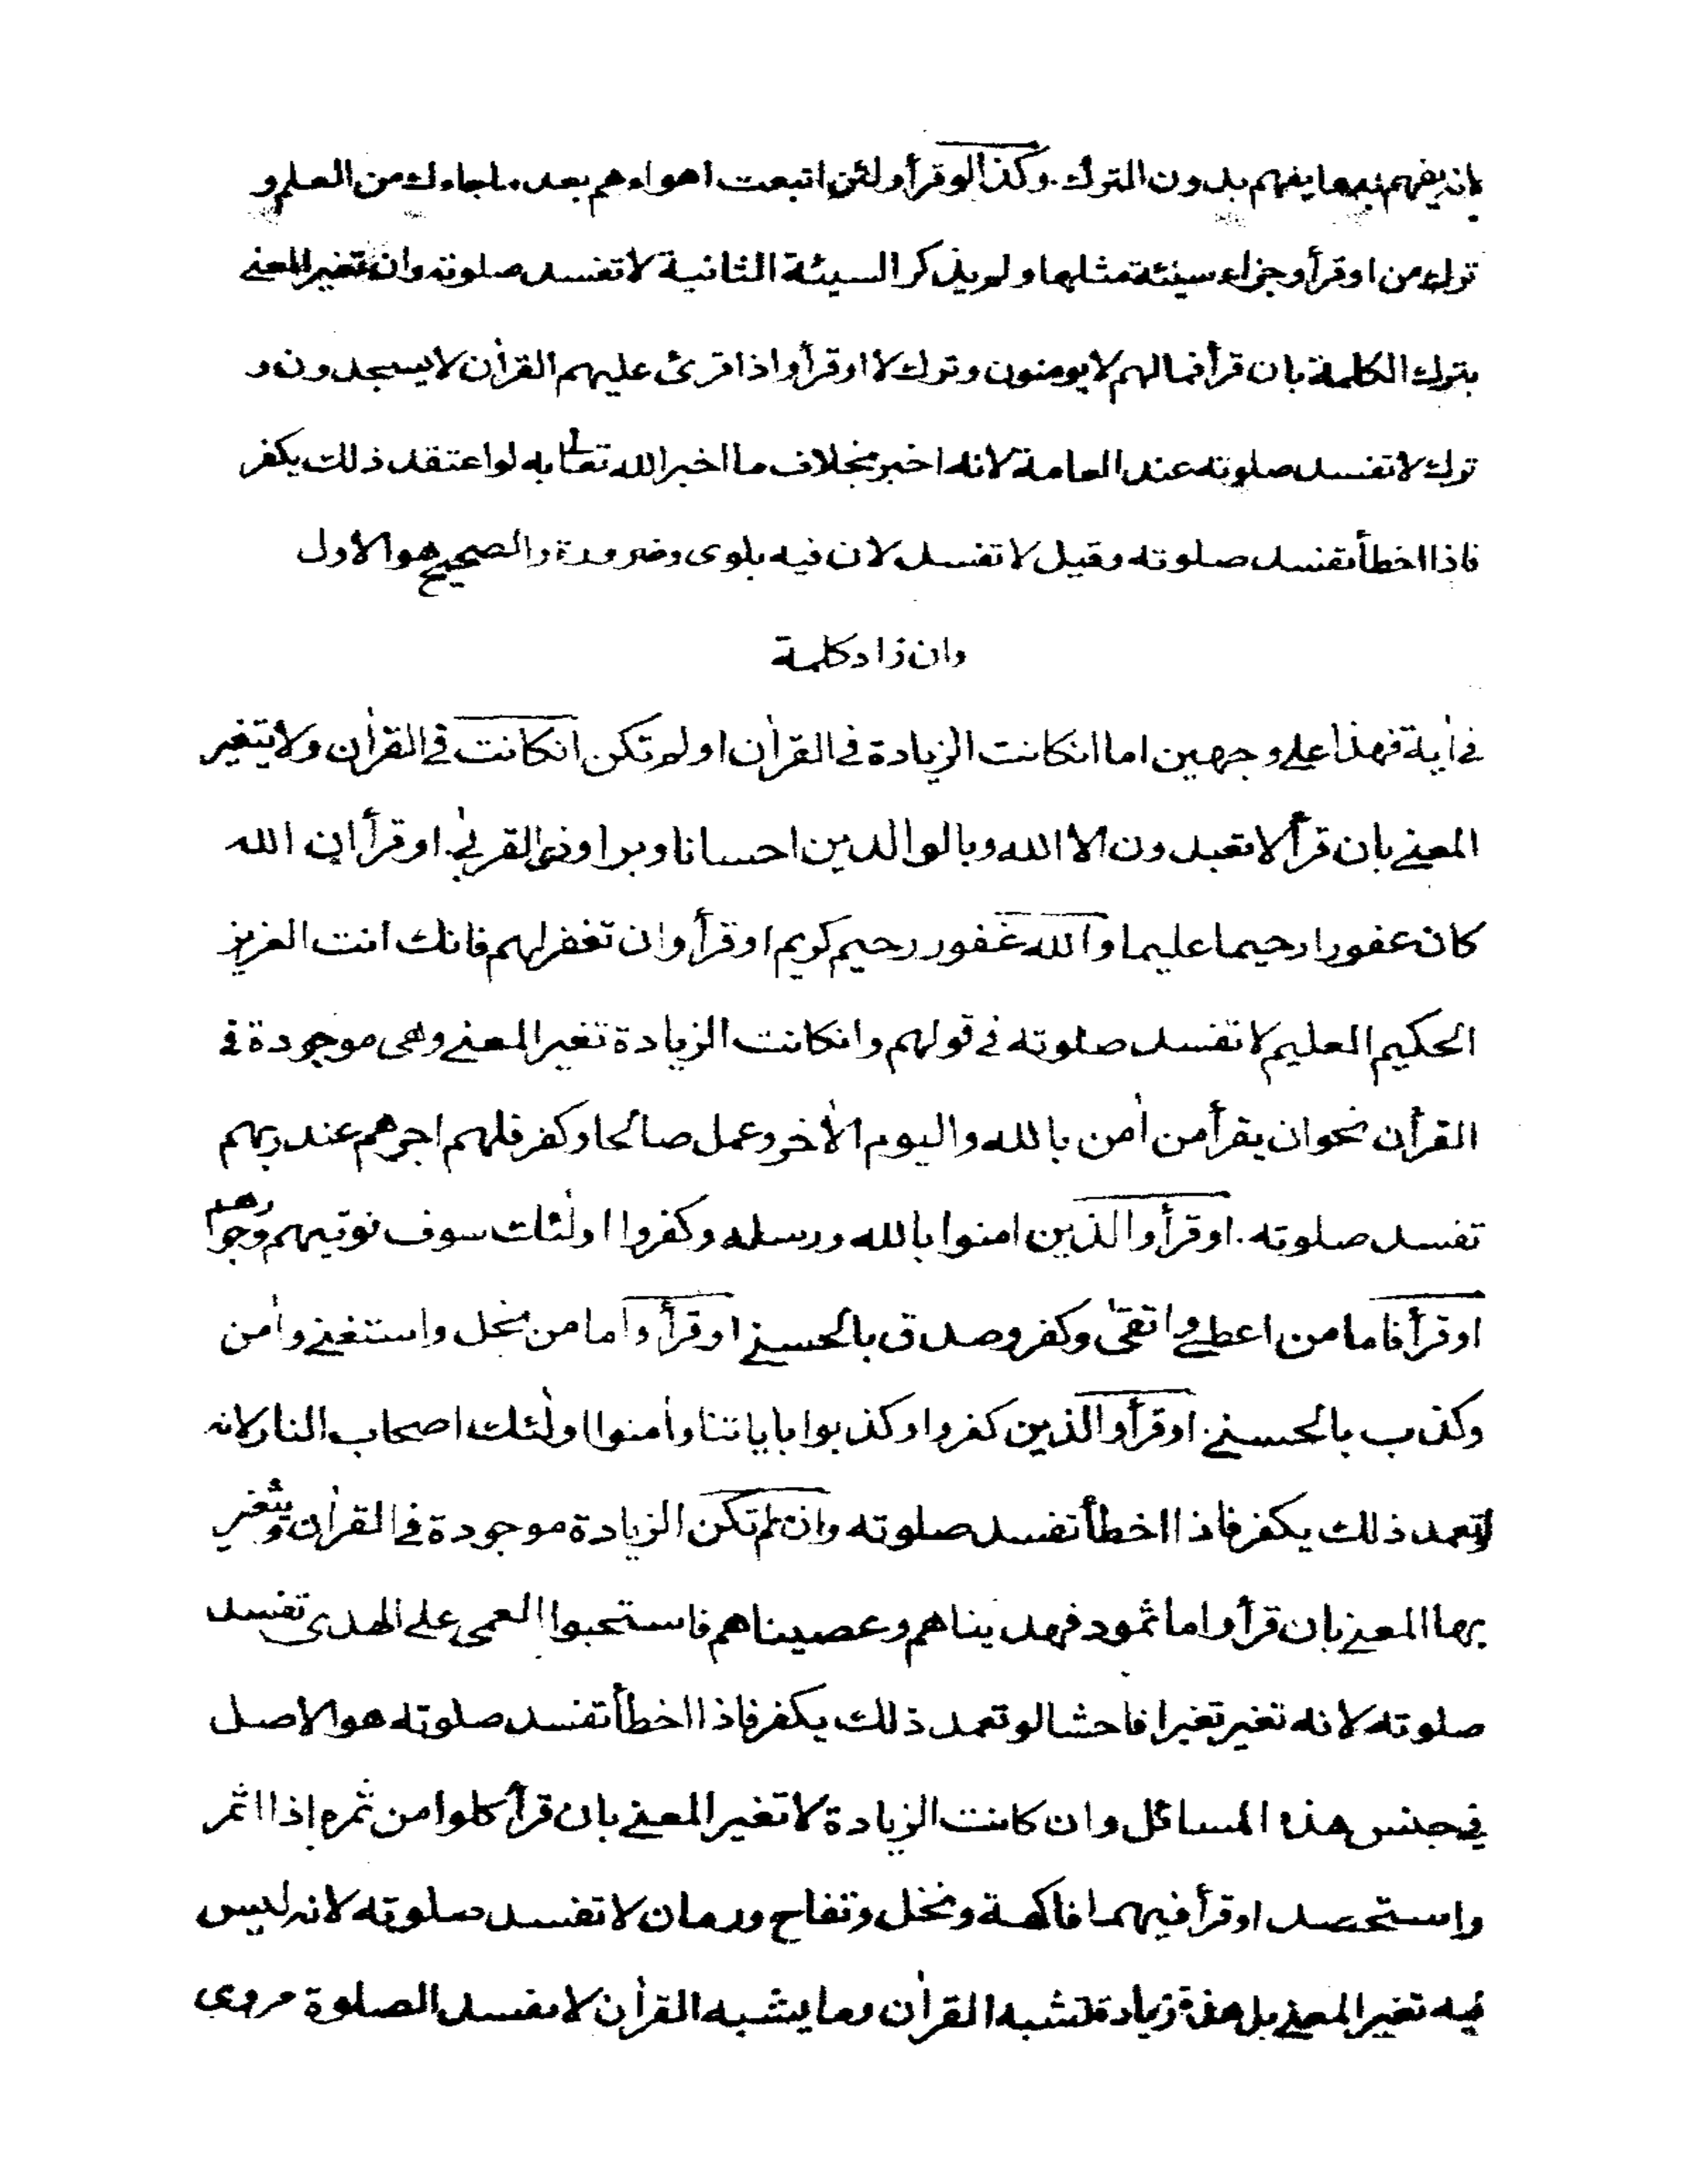 لانه يفهم به ما يفهم بدون المتروك. وكذا لو قرأ ولئن اتبعت اهواءهم بعد ماجاءك من العلم و
ترك من اوقرأ وجزاء سيئة مثلها ولم يذكر السيئة الثانية لا تفسد صلوته وان تغير المعنى
بترك الكلمة بان قرأ فما لهم لا يومنون وترك لا اوقرأ واذا قرئ عليهم القرأن لا يسجدون و
ترك لا تفسد صلوته عند العامة لانه اخبر بخلاف ما اخبر الله تعالى به لو اعتقد ذلك يكفر
فاذا اخطأ تفسد صلوته وقيل لا تفسد لان فيه بلوى وضرورة والصحيح هو الاول
وان زاد كلمة
فى أية فهذا على وجهين اما انكانت الزيادة فى القرأن اولم تكن انكانت فى القرأن ولا يتغير
المعنى بان قرأ لا تعبدون الا الله وبالوالدين احسانا وبرا وذى القربى. اوقرأ ان الله
كان غفورا رحيما عليما والله غفور رحيم كريم اوقرأ وان تغفر لهم فانك انت العزيز
الحكيم العليم لا تفسد صلوته فى قولهم وانكانت الزيادة تغير المعنى وهى موجودة فى
القرأن نحو ان يقرأ من أمن بالله واليوم الأخر وعمل صالحا وكفر فلهم اجرهم عند ربهم
تفسد صلوته. اوقرأ والذين امنوا بالله ورسله وكفروا اولئك سوف نوتيهم اجورهم
اوقرأ فاما من اعطى واتقى وكفر وصدق بالحسنى اوقرأ واما من بخل واستغنى وأمن
وكذب بالحسنى. اوقرأ والذين كفروا وكذبوا باياتنا وأمنوا اولئك اصحاب النار لانه
لو تعمد ذلك يكفر فاذا اخطأ تفسد صلوته وان لم تكن الزيادة موجودة فى القرأن ويتغير
بها المعنى بان قرأ واما ثمود فهديناهم وعصيناهم فاستحبوا العمى على الهدى تفسد
صلوته لانه تغير تغيرا فاحشا لو تعمد ذلك يكفر فاذا اخطأ تفسد صلوته هو الاصل
فى جنس هذه المسائل وان كانت الزيادة لا تغير المعنى بان قرأ كلوا من ثمره إذا اثمر
واستحصد اوقرأ فيهما فاكهة ونخل وتفاح ورمان لا تفسد صلوته لانه ليس
فيه تغير المعنى بل هذه زيادة تشبه القرأن وما يشبه القرأن لا يفسد الصلوة مروى